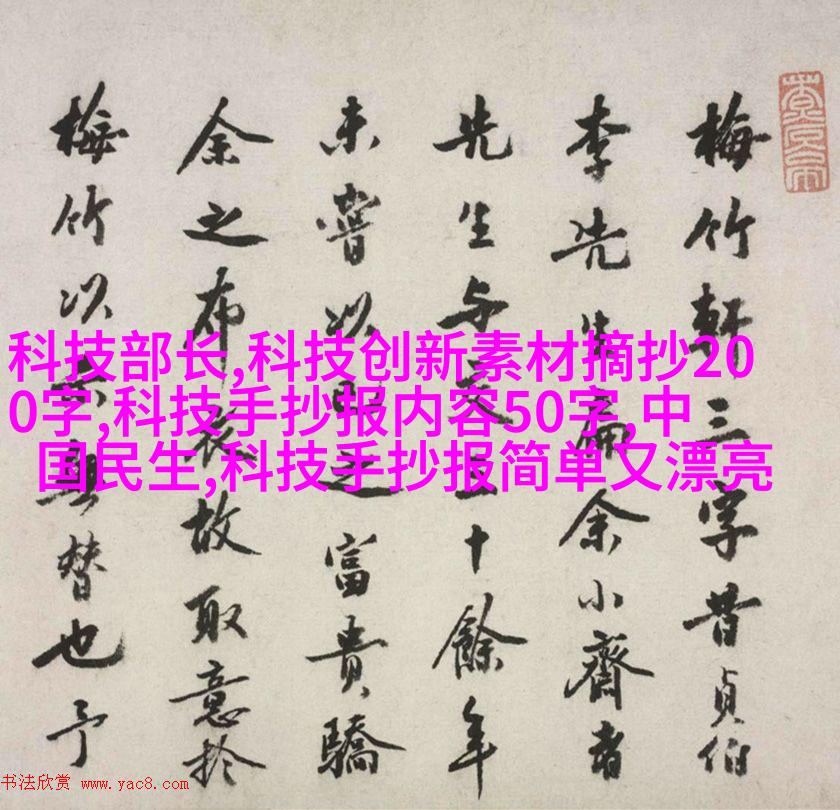 梅竹軒三字昔貞伯
李先生扁余小齋者
先生与交三十餘年
未嘗以之富貴驕
余之布衣故取意於
梅竹以示無替也予
科技部长,科技创新素材摘抄20
0字,科技手抄报内容50字,中
国民生,科技手抄报简单又漂亮
书法欣赏 www.yac8.com